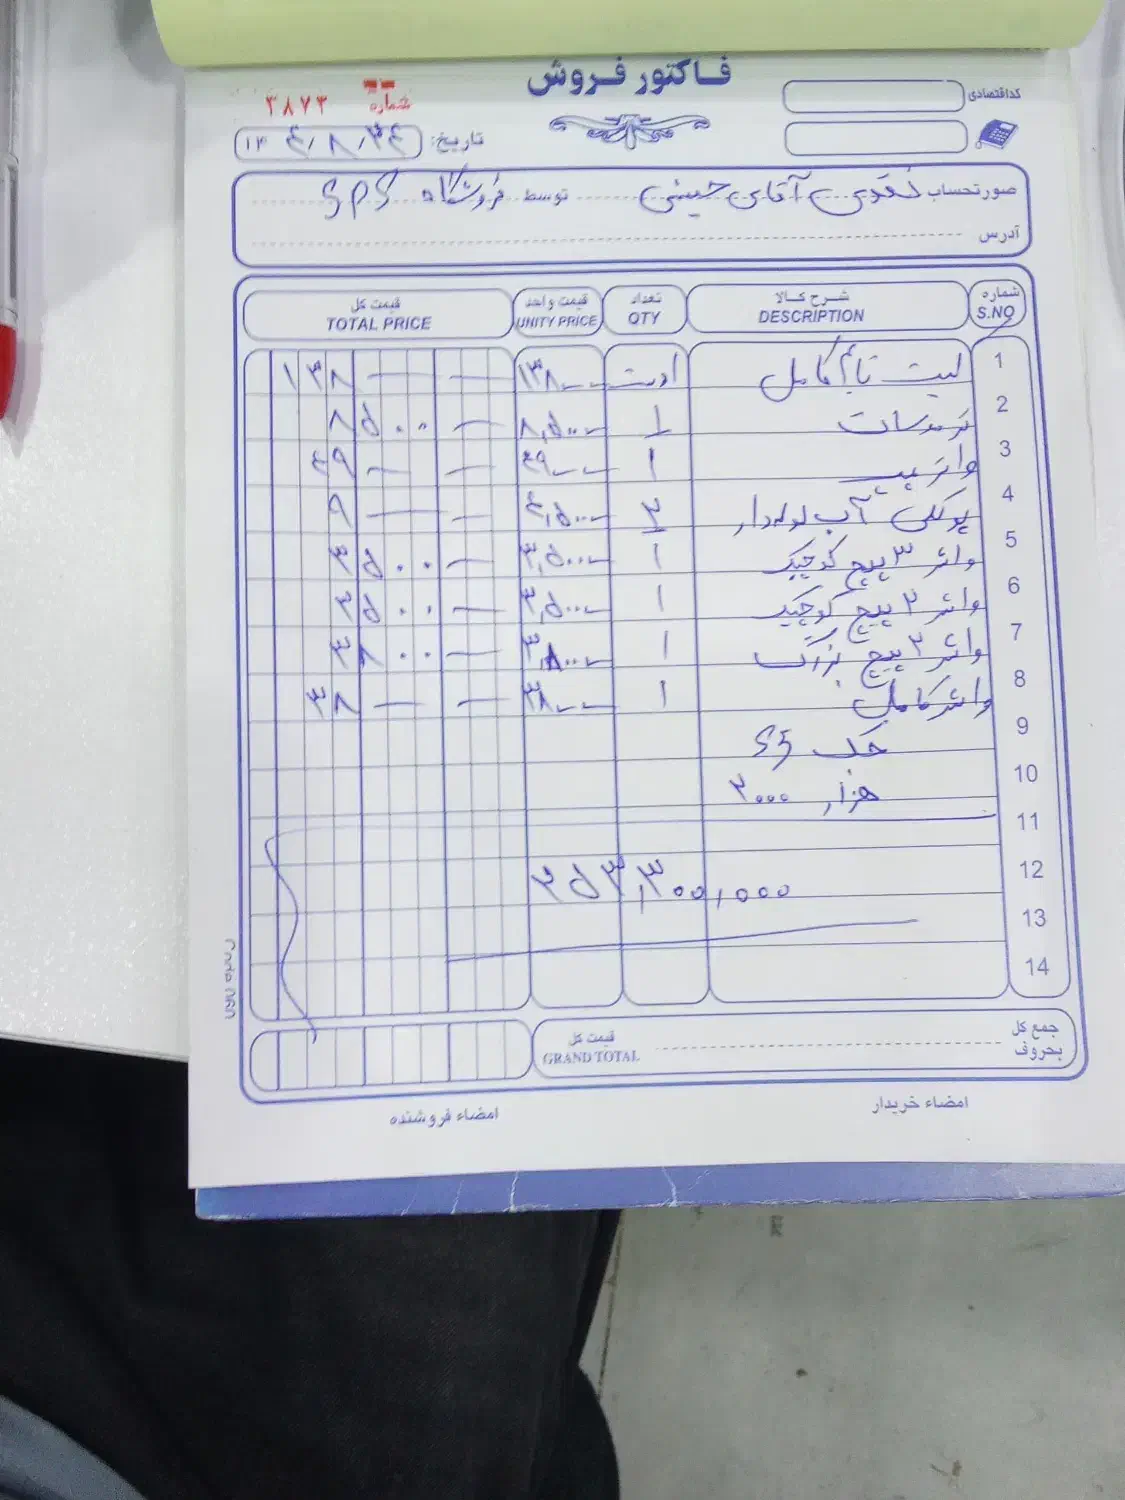 فاکتور فروش
کد اقتصادی
شماره ۳۸۷۳
تاریخ: ۲۴ / ۸ / ۴ ۱۴
صورتحساب نقدی آقای حسینی توسط فروشگاه SPS
آدرس
شماره S.NO شرح کالا DESCRIPTION تعداد QTY قیمت واحد UNITY PRICE قیمت کل TOTAL PRICE
1 ۱۳۸-- ۱۳۸ — —
2 ۱ ۸,۵۰۰- ۸ ۵۰۰ —
3 ۱ ۴۹-- ۴۹ — —
4 پولکی آب لوله‌دار ۲ ۴,۵۰۰- ۹ — —
5 واشر ۳ پیچ کوچک ۱ ۳,۵۰۰- ۳ ۵۰۰ —
6 واشر ۲ پیچ کوچک ۱ ۳,۵۰۰- ۳ ۵۰۰ —
7 واشر ۲ پیچ بزرگ ۱ ۳,۸۰۰- ۳ ۸۰۰ —
8 واشر کامل ۱ ۳۸-- ۳۸ — —
9 جک S5
10 هزار ۲۰۰۰
11
12 ۲۵۳,۳۰۰,۰۰۰
13
14
جمع کل بحروف قیمت کل GRAND TOTAL
امضاء خریدار امضاء فروشنده